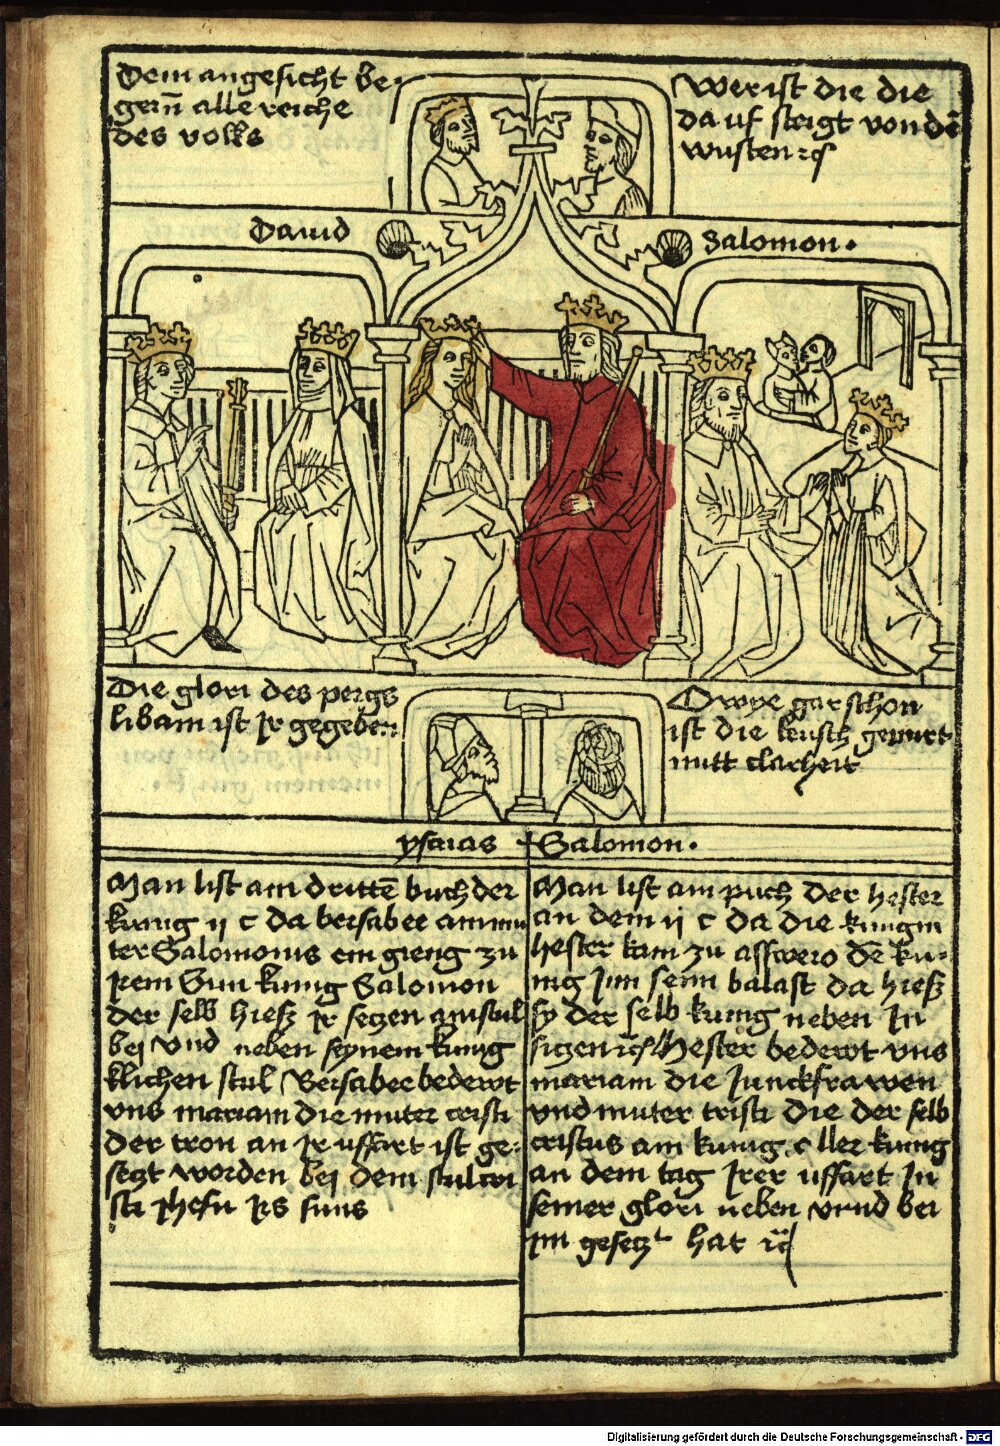 Dem angesicht be-
gern̄ alle reiche
des volks
Wer ist die die
da uf steigt von dē
wusten ꝛc
Dauid
Salomon.
Die glori des pergs
libani ist Jr gegeben
O wye gar schon
ist die keusch gepurt
mitt clarheit
ysaias
Salomon.
Man list am drittē buch der
kunig ij c da bersabee am mu
ter Salomonis ein gieng zu
Jrem Sun kunig Salomon
der selb hiesz Jr setzen ain stul
bei vnd neben seynem kunig
klichen stul Bersabee bedewt
vns mariam die muter cristi
der tron an Jr uffart ist ge-
setzt worden bei dem stul cri
sti Jhesu Jrs suns
Man list am puch der Hester
an dem ij c da die kungin
Hester kam zu asswero dē ku-
nig Jnn seim balast da hiesz
sy der selb kunig neben Jn
sitzen ꝛc Hester bedewt vns
mariam die Junckfrawen
vnd muter cristi die der selb
cristus am kunig aller kunig
an dem tag Jrer uffart Jn
seiner glori neben vnnd bei
im gesetzt hat ꝛc
Digitalisierung gefördert durch die Deutsche Forschungsgemeinschaft - DFG